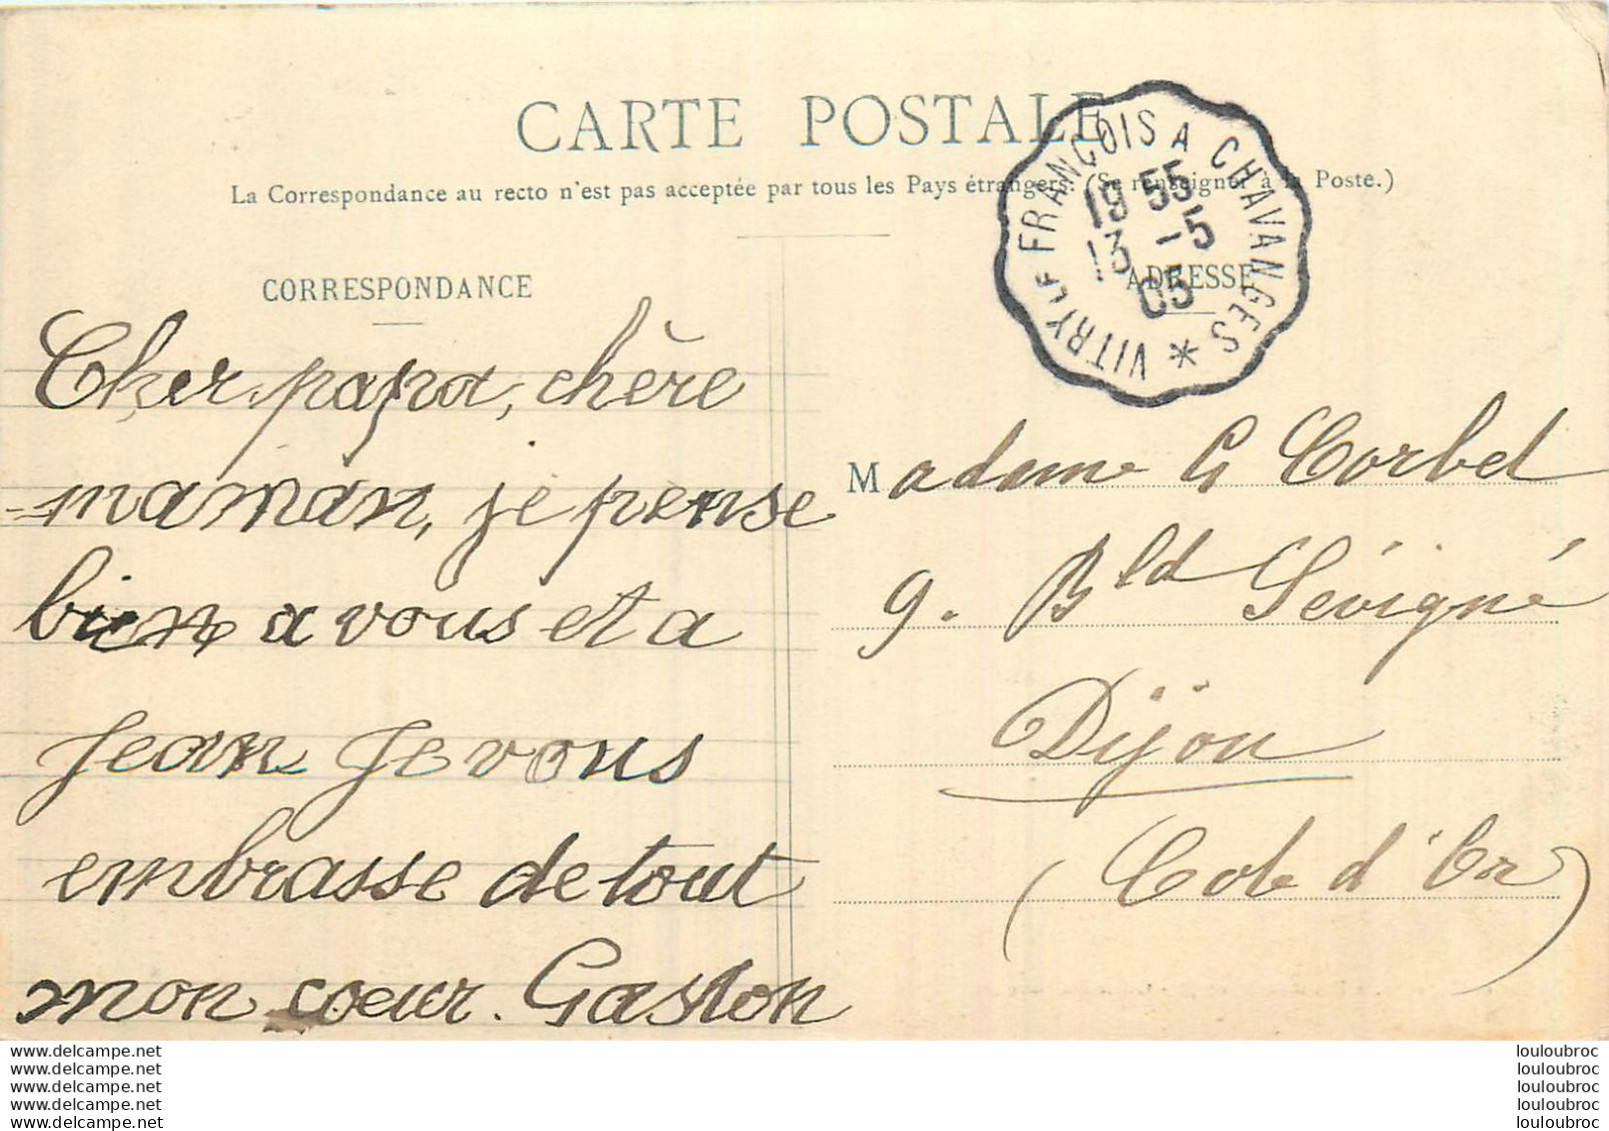 CARTE POSTALE
La Correspondance au recto n'est pas acceptée par tous les Pays étrangers. (Se renseigner à la Poste.)
CORRESPONDANCE
ADRESSE
VITRY LE FRANÇOIS A CHAVANGES *
19 55
13 -5
05
Cher papa, chère
maman, je pense
bien a vous et a
Jean Je vous
embrasse de tout
mon coeur. Gaston
Madame G Corbel
9. Bld Sévigné
Dijon
(Cote d'Or)
www.delcampe.net
www.delcampe.net
www.delcampe.net
www.delcampe.net
www.delcampe.net
louloubroc
louloubroc
louloubroc
louloubroc
louloubroc